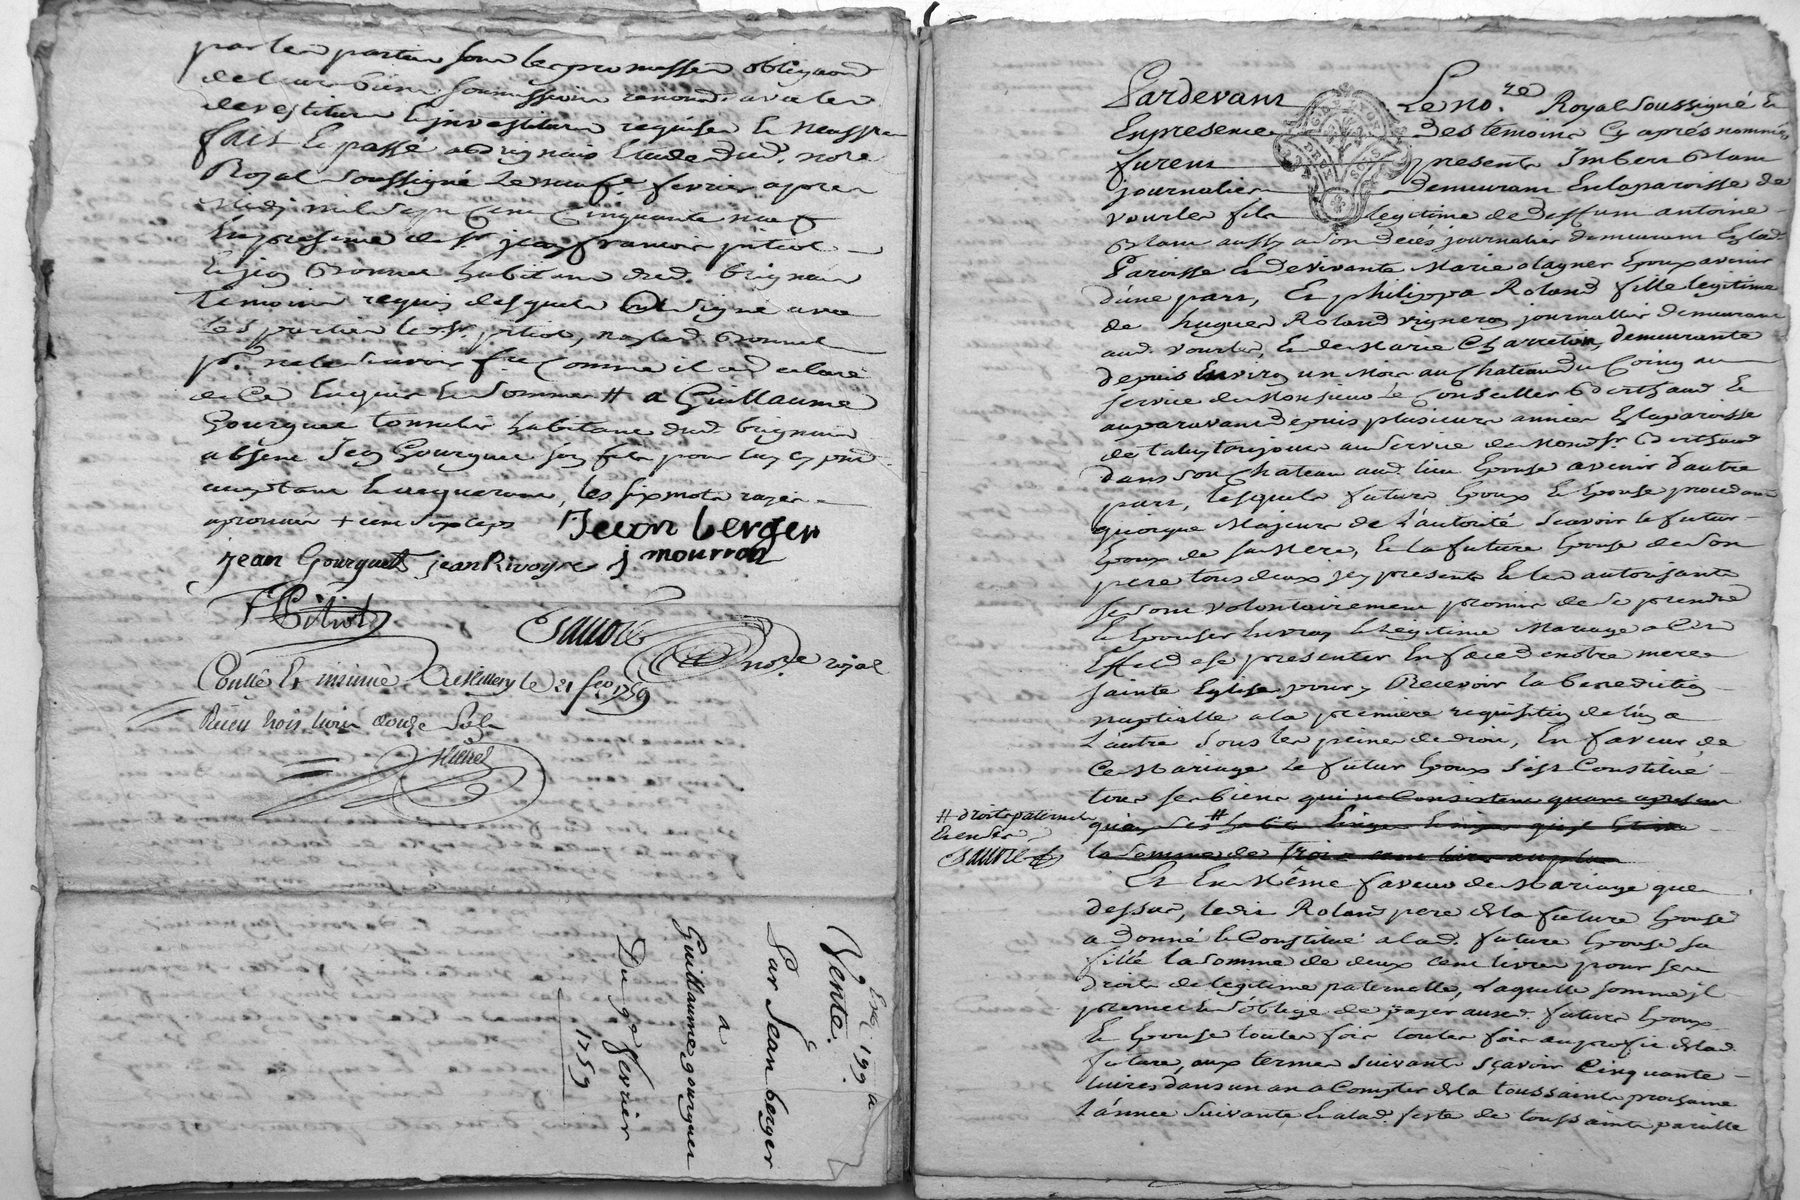 par les parties sous les promesses obligaõns
de leurs biens soumissions renonõns avec les
devestitures & investitures requises & necessres
fait & passé a brignais Etude dud. no.re
Royal soussigné le neuf.e fevrier apres
midj mil sept Cent Cinquante neuf
En presence de sr. jean francois pitiot
& jean Bonnet habitans dud. brignais
temoins requis lesquels ont signé avec
les parties le sr. pitiot, non led. Bonnet
pr. ne le scavoir f.re Comme il a declaré
de Ce Enquis & sommé # a Guillaume
Gourguet tonnelier habitant dud. brignais
absent Jean Gourguet son fils pour luy cy prñt
aceptant & acquereur, les six mots rayer
aprouvés +
Jean berger
jean Gourguet jean Rivoyre j mourron
F Pitiot
Sauvle no.re royal
Conllé & insinué a St Millery le 21 fev 1759
Receu trois livres douze sols
Vente.
Exp 199.
Par Jean berger
a
Guillaume gourguet
Du 9e fevrier
1759
Pardevant Le no.re Royal soussigné &
En presence des temoins Cy aprés nommés
furent presents Imbert Blanc
journalier demeurant En la paroisse de
vourles fils legitime de deffunt antoine
Blanc aussy a son decés journalier demeurant En lad.
Paroisse & de vivante Marie olagner Epoux avenir
d'une part, Et philippa Roland fille legitime
de hugues Roland vigneron journallier demeurant
aud. vourles, & de Marie Charreton, demeurante
depuis Environ un mois au Chateau du Coing au
service de Monsieur le Conseiller Berthaud &
auparavant depuis plusieurs années En la paroisse
de taluy toujours au service de mond. sr. Berthaud
dans son Chateau aud. lieu Epouse avenir d'autre
part, lesquels futurs Epoux & Epouse procedant
quoyque Majeurs de L'autorité scavoir le futur
Epoux de sa Mere, & la future Epouse de son
pere tous deux jcy presents & les autorisants
se sont volontairement promis de se prendre
& Epouser En vray & legitime Mariage a Cet
Effet de se presenter En face de notre mere
sainte Eglise pour y Recevoir la benediction
nuptialle a la premiere requisition de l'un a
L'autre sous les peines de droit, En faveur de
Ce Mariage le futur Epoux s'est Constitué
tous ses biens qui ne Consistent quant apresent
qu'en ses # habits Linges & nipes qu'il Estime
la somme de trois cent livres au plus
# droits paternels
Sauvle
Et En Même faveur de Mariage que
dessus, ledit Roland pere de la future Epouse
a donné & Constitué a lad. future Epouse sa
fille la somme de deux cent livres pour ses
droits de legitime paternelle, Laquelle somme jl
promet & s'oblige de payer ausd. futurs Epoux
& Epouse toutes fois toutes fois au profit de lad.
future, aux termes suivants sçavoir Cinquante
livres dans un an a Compter de la toussaints prochaine
L'année suivante & a lad. feste de toussaints pareille